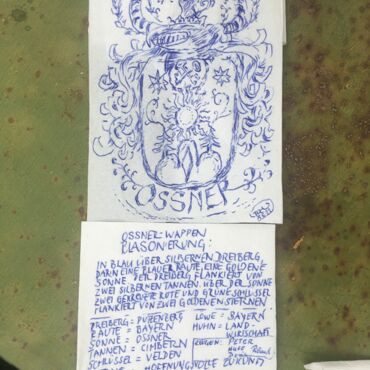 OSSNER
OSSNER-WAPPEN
BLASONIERUNG:
IN BLAU ÜBER SILBERNEN DREIBERG,
DARIN EINE BLAUE RAUTE, EINE GOLDENE
SONNE. DER DREIBERG FLANKIERT VON
ZWEI SILBERNEN TANNEN. ÜBER DER SONNE
ZWEI GEKREUZTE ROTE UND GRÜNE SCHLÜSSEL
FLANKIERT VON ZWEI GOLDENEN STERNEN.
DREIBERG = PÜTZENBERG
RAUTE = BAYERN
SONNE = OSSNER
TANNEN = CIMBERN
SCHLÜSSEL = VELDEN
HOFFNUNGSVOLLE ZUKUNFT
LÖWE = BAYERN
HUHN = LAND-
WIRTSCHAFT
PETER